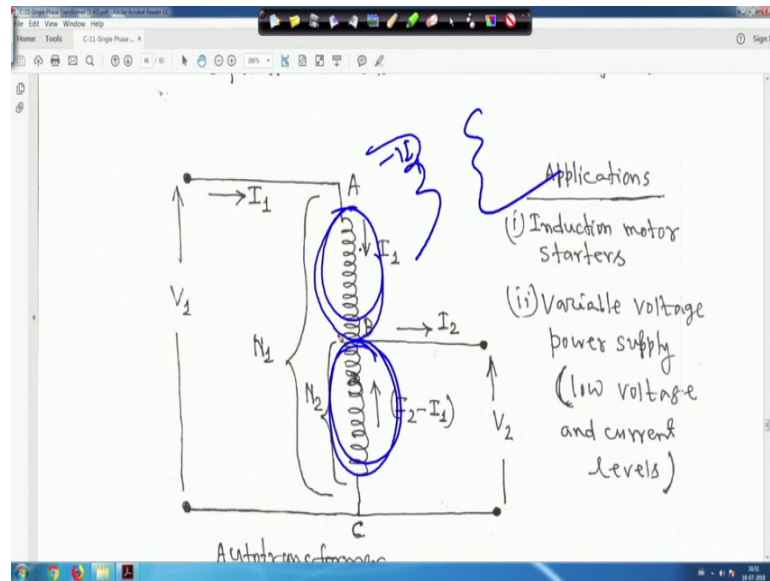 C-11-Single Phase Transformer (1-65).pdf - Adobe Acrobat Reader DC
File Edit View Window Help
Home Tools C-11-Single Phase ... x
Sign
48 / 65
200%
I1
A
I1
V1
N1
B
I2
N2
(I2-I1)
V2
C
Autotransformer
Applications
(i) Induction motor
starters
(ii) Variable voltage
power supply
(low voltage
and current
levels)
16:01
18-07-2019